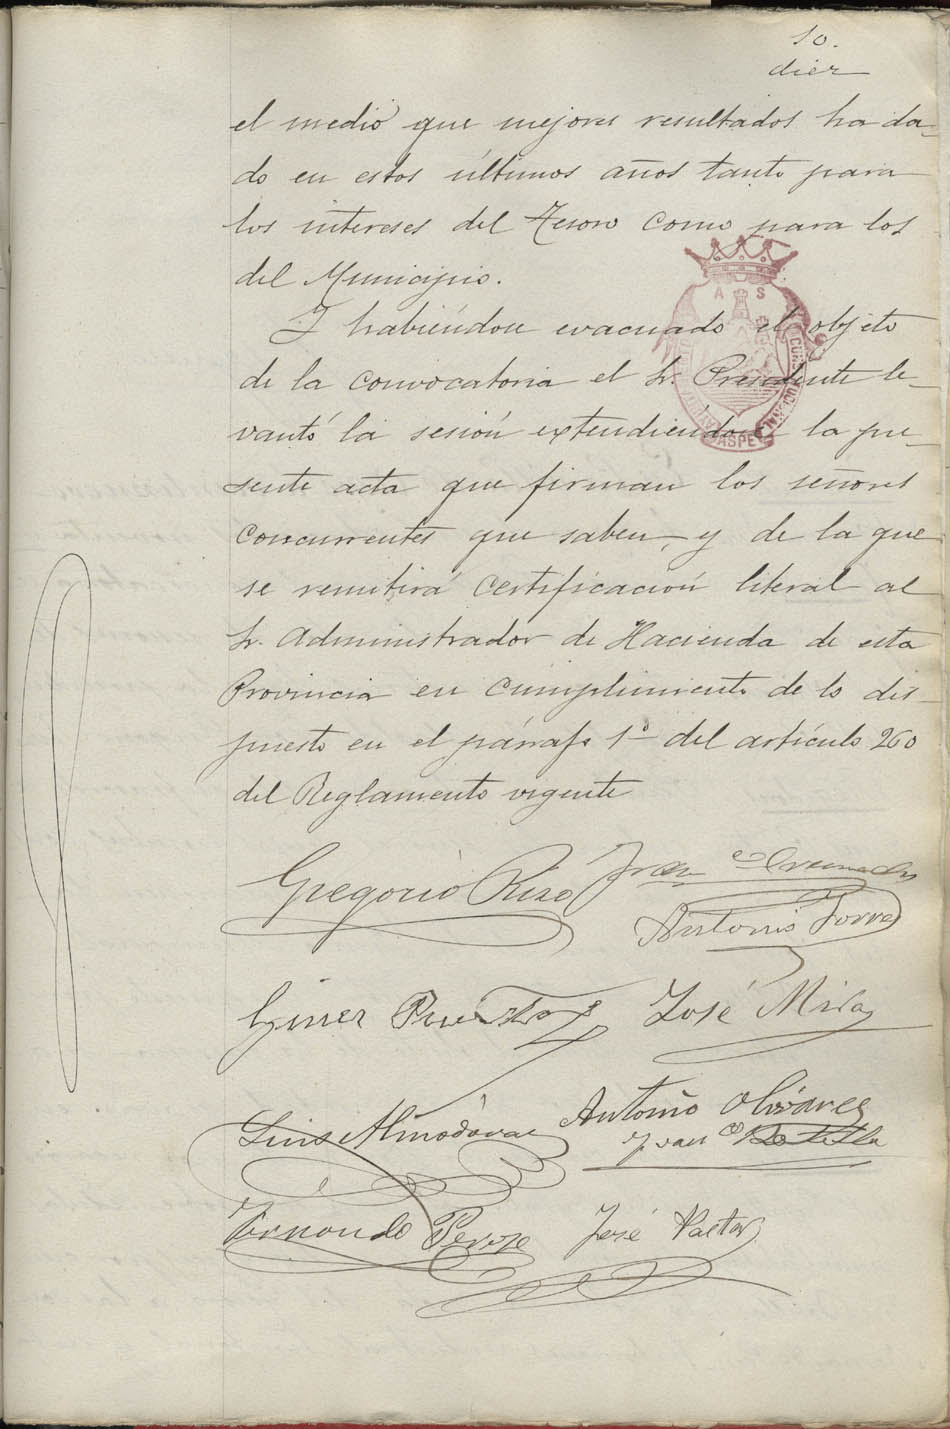 10.
diez
el medio que mejores resultados ha da-
do en estos últimos años tanto para
los intereses del Tesoro como para los
del Municipio.
Y habiéndose evacuado el objeto
de la convocatoria el Sr. Presidente le-
vantó la sesión extendiéndose la pre-
sente acta que firman los señores
concurrentes que saben, y de la que
se remitirá certificación literal al
Sr. Administrador de Hacienda de esta
Provincia en cumplimiento de lo dis-
puesto en el párrafo 1º del artículo 260
del Reglamento vigente
A S
ASPE
Gregorio Rizo
Antonio Torres
Giner
José Mira
Luis Almodovar
Antonio Olivares
Fernando
José Pastor